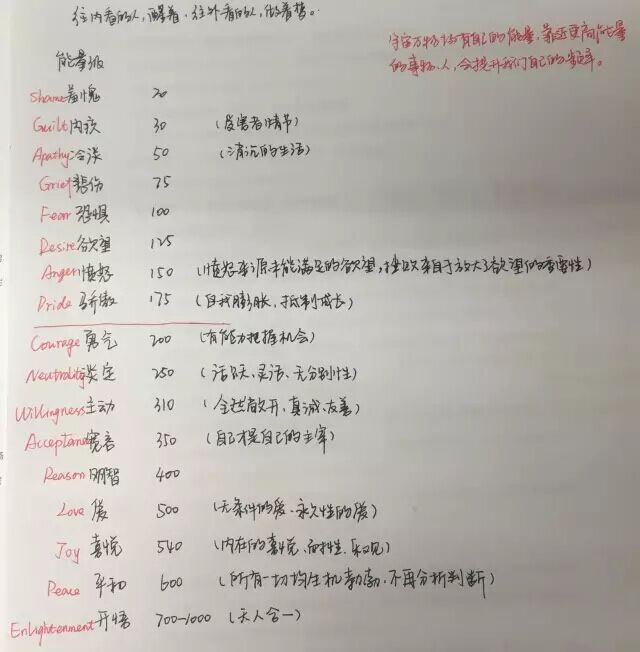 往内看的人，醒着，往外看的人，做着梦。
宇宙万物都有自己的能量，靠近更高能量
的事物、人，会提升我们自己的频率。
能量级
Shame羞愧 20
Guilt内疚 30 （受害者情节）
Apathy冷淡 50 （消沉的生活）
Grief悲伤 75
Fear 恐惧 100
Desire欲望 125
Anger愤怒 150 （愤怒来源未能满足的欲望，挫败来自于放大了欲望的重要性）
Pride 骄傲 175 （自我膨胀，抵制成长）
Courage 勇气 200 （有能力把握机会）
Neutrality淡定 250 （活跃、灵活、无分别性）
Willingness主动 310 （全然敞开，真诚、友善）
Acceptance宽容 350 （自己才是自己的主宰）
Reason明智 400
Love 爱 500 （无条件的爱、永久性的爱）
Joy 喜悦 540 （内在的喜悦，耐性、乐观）
Peace 平和 600 （所有一切均生机勃勃，不再分析判断）
Enlightenment开悟 700-1000 （天人合一）